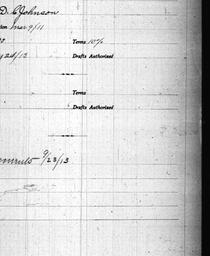 D. C. Johnson
Mar 9/11
Terms 10%
Drafts Authorized
Terms
Drafts Authorized
9/23/13